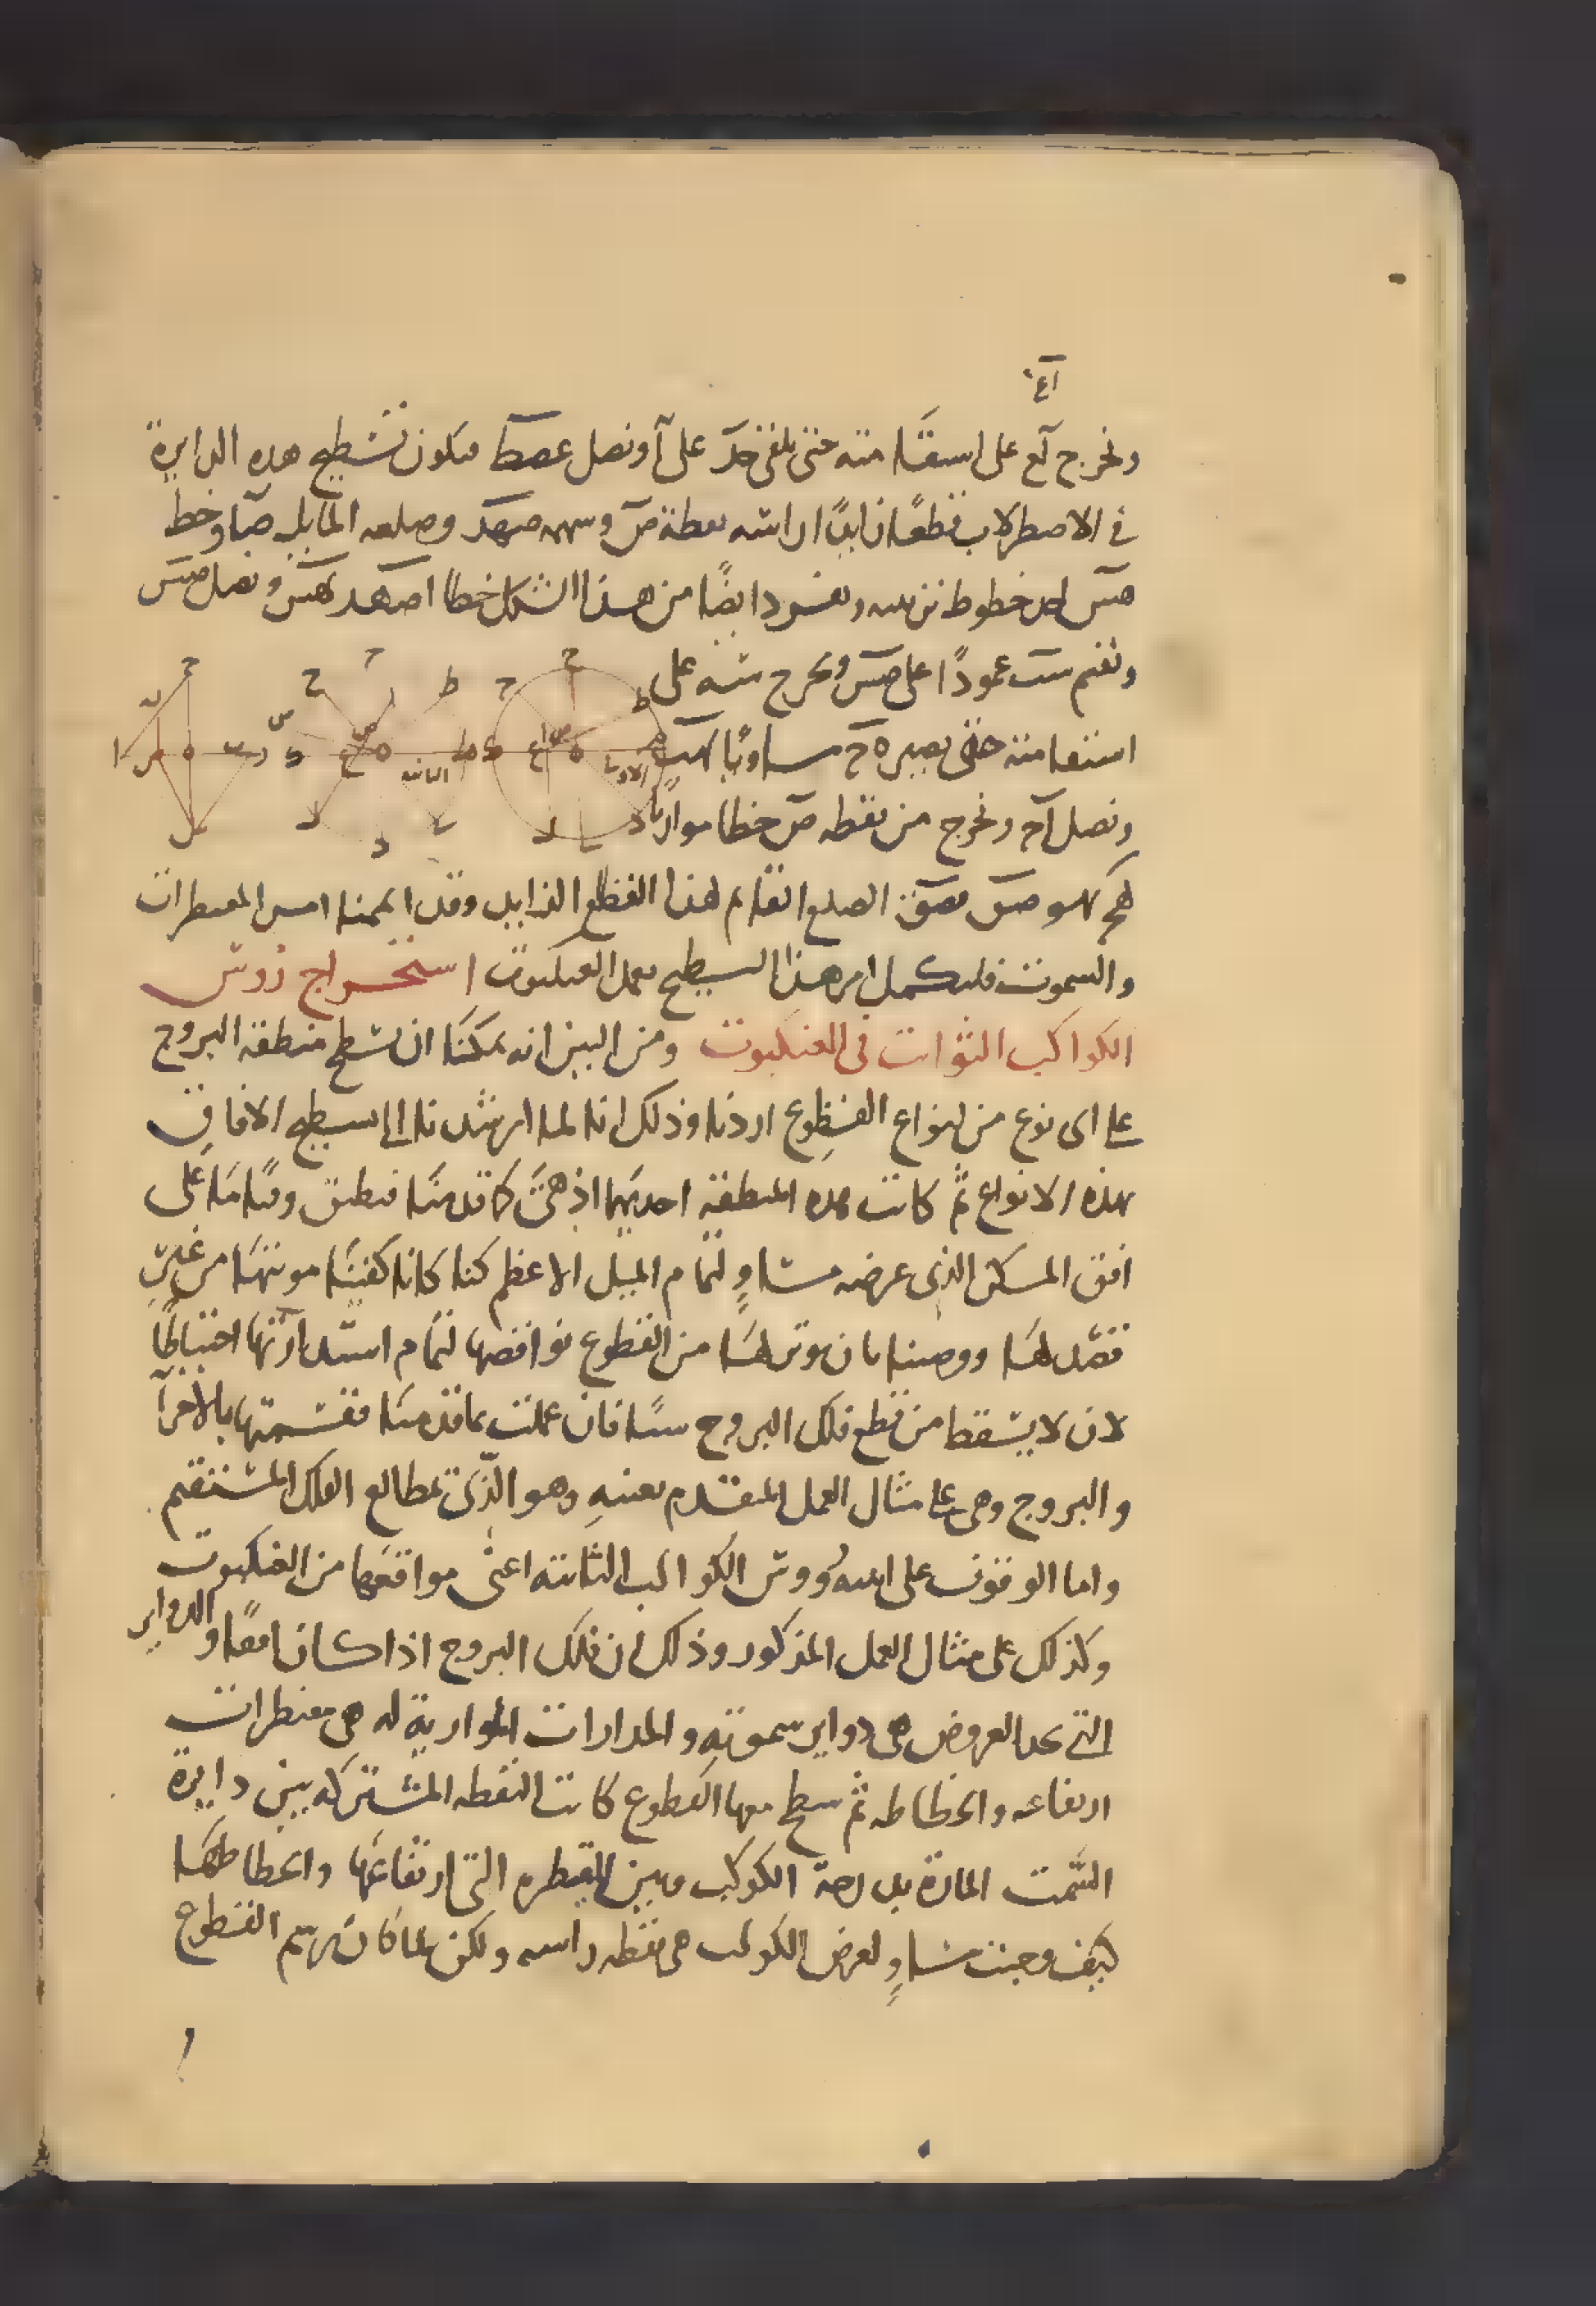 ونخرج لع على استقامته حتى يلقى حد على ا ونصل عصط فيكون تسطيح هذه الدايرة
في الاصطرلاب قطعا زايدا راسه نقطة ص وسهمه صهد وضلعه المايل صا وخط
صس احد خطوط ترتيبه ونفرد ايضا من هذا الشكل خطا اصهد كهس ونصل صس
ونقيم ست عمودا على صس ونخرج سه على
استقامته حتى يصير ه ح مساويا
ونصل اح ونخرج من نقطه ص خطا موازيا
فهو صق الضلع القايم لهذا القطع الزايد وقد اتممنا امر المقنطرات
والسموت فليكمل امر هذا التسطيح بعمل العنكبوت استخراج رؤس
الكواكب الثوابت في العنكبوت ومن البين انه يمكننا ان نسطح منطقة البروج
على اى نوع من انواع القطوع اردنا وذلك انا لما ارشدنا الى تسطيح الافاق
بهذه الانواع ثم كانت هذه المنطقة احديها اذ هى كما قدمنا تنطبق وقتا ما على
افق المسكن الذى عرضه مساوٍ لتمام الميل الاعظم كنا كانا كفينا مونتها من غير
قصد لها ووصينا بان يوثر لها من القطوع نواقصها لتمام استدارتها احتياطا
لان لا يسقط من قطع فلك البروج شيا فان عملت بما قدمنا فقسمتها بالاجزآ
والبروج وهى على مثال العمل المتقدم بعينه وهو الذى بمطالع الفلك المستقيم
واما الوقوف على رؤوس الكواكب الثابته اعنى مواقعها من العنكبوت
وكذلك على مثال العمل المذكور وذلك ان فلك البروج اذا كان افقا والدواير
التى تحد العروض هى دواير سموته والمدارات الموازية له هى مقنطرات
ارتفاعه وانحطاطه ثم سطح معها القطوع كانت النقطه المشتركه بين دايرة
السمت المارة بدرجة الكوكب وبين المقنطره التى ارتفاعها وانحطاطها
كيف وجبت مساوٍ لعرض الكوكب هى نقطه راسه ولكن لما كان رسم القطوع